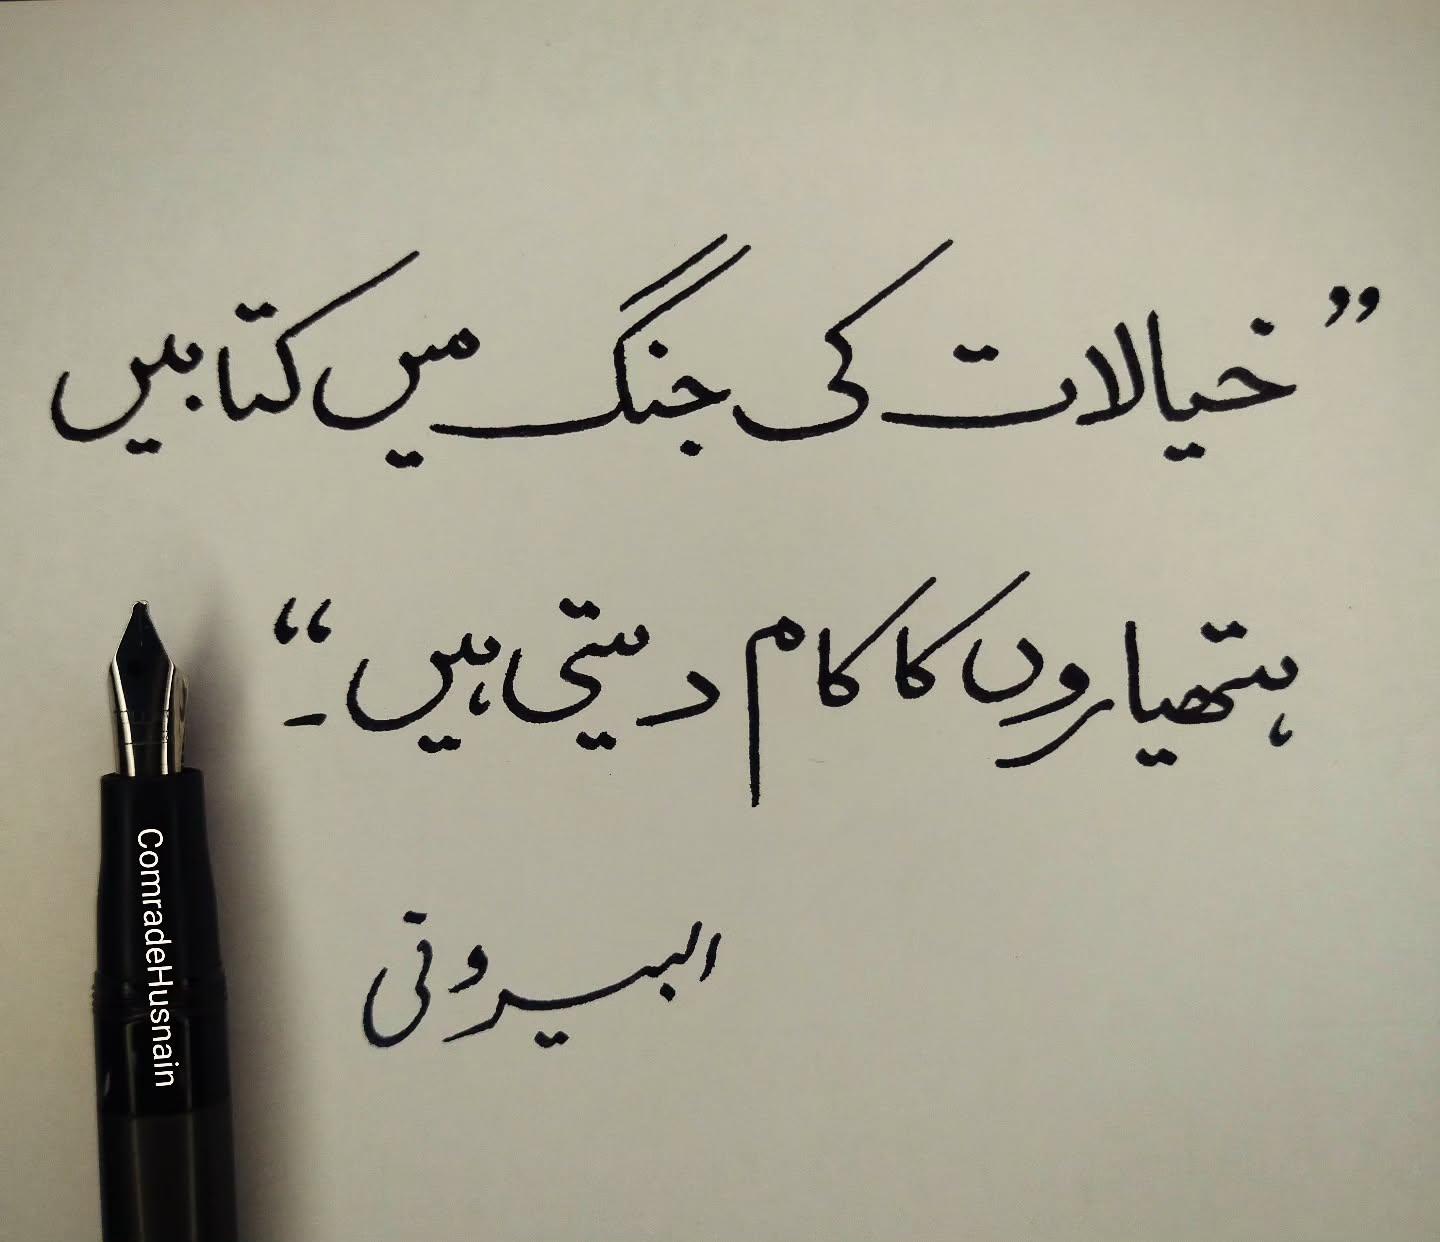 ”خیالات کی جنگ میں کتابیں
ہتھیاروں کا کام دیتی ہیں۔“
البیرونی
ComradeHusnain